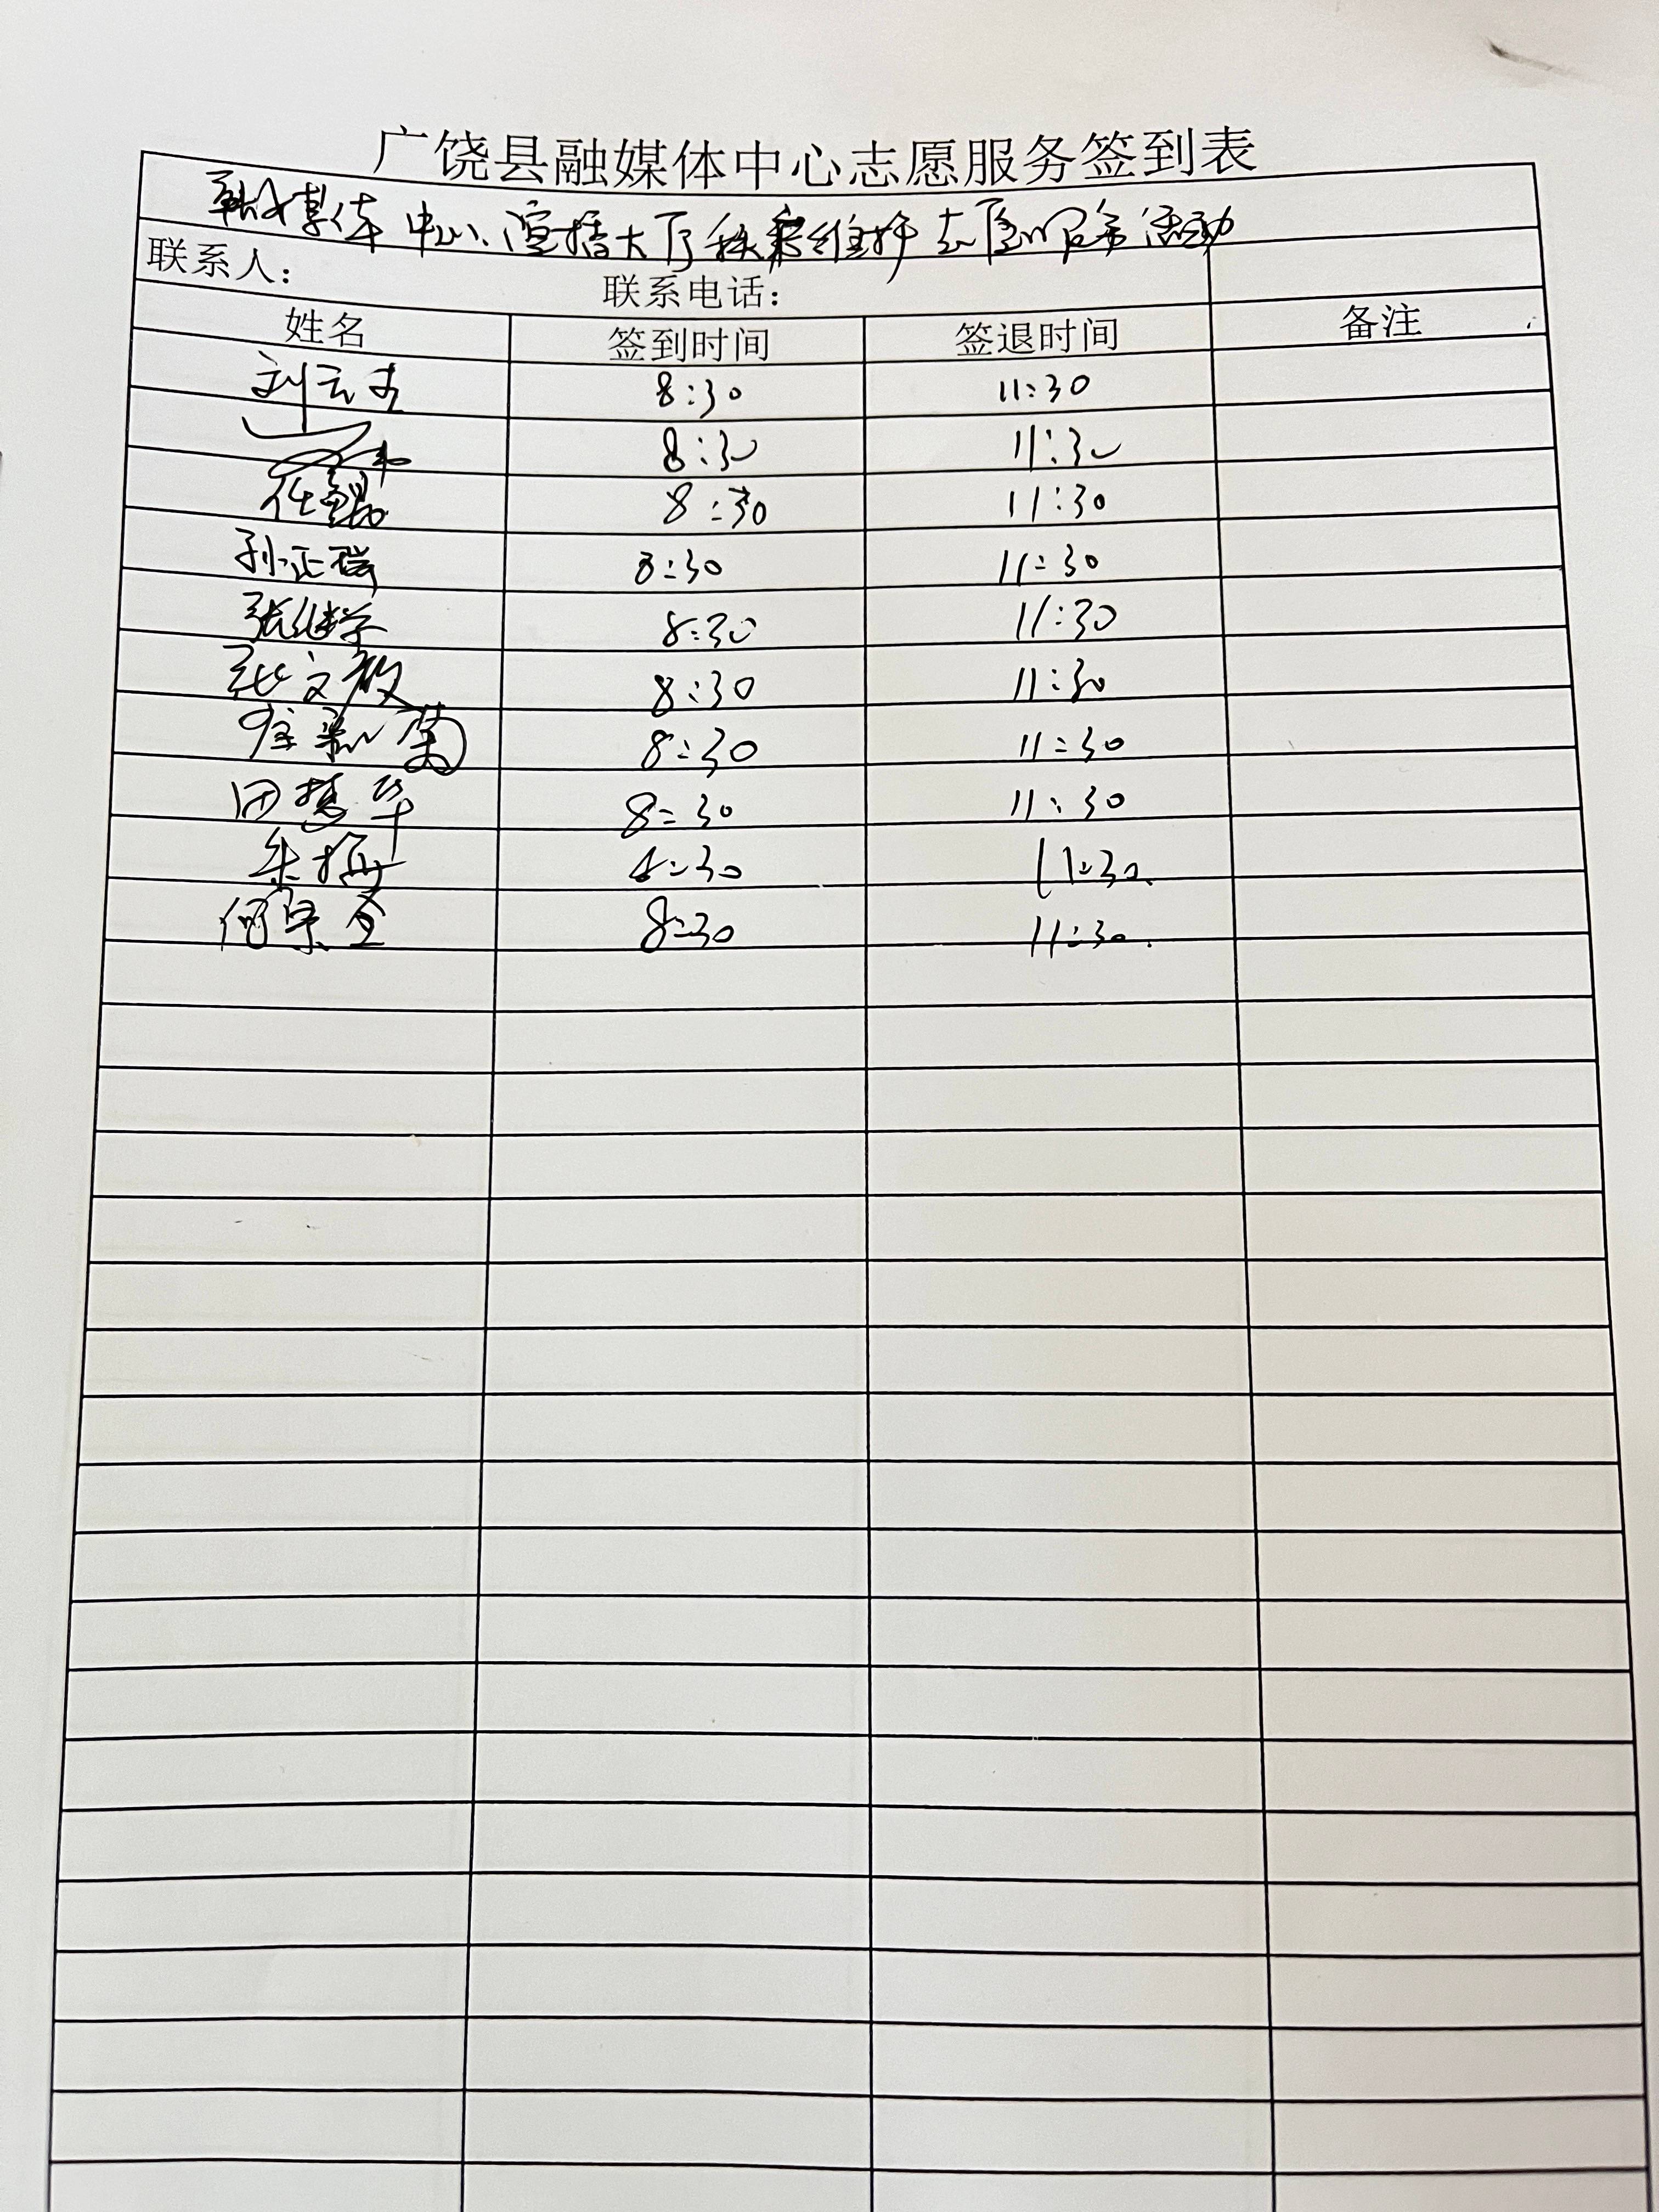 广饶县融媒体中心志愿服务签到表
融媒体中心演播大厅秩序维护志愿服务活动
联系人： 联系电话：
姓名 签到时间 签退时间 备注
刘云 8:30 11:30
8:30 11:30
8:30 11:30
孙正瑞 8:30 11:30
张继学 8:30 11:30
张文敏 8:30 11:30
菊 8:30 11:30
田慧华 8:30 11:30
朱梅 8:30 11:30
何荣 8:30 11:30